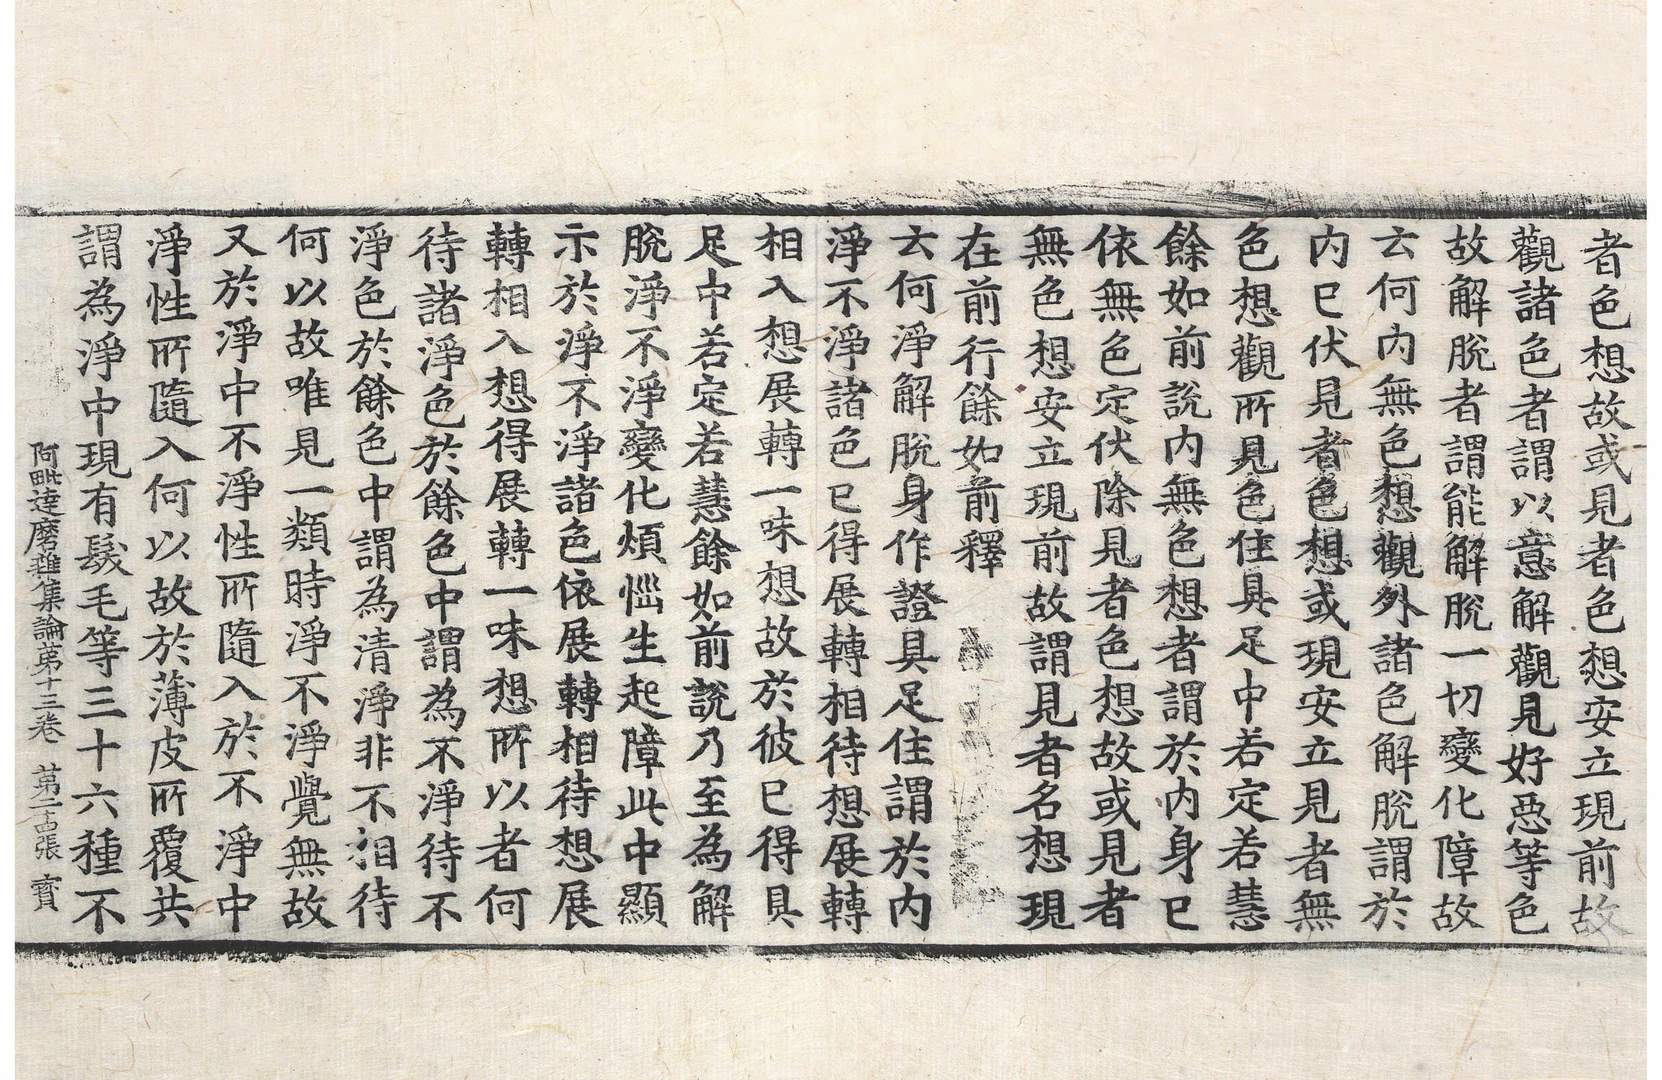 者色想故或見者色想安立現前故
觀諸色者謂以意解觀見好惡等色
故解脫者謂能解脫一切變化障故
云何內無色想觀外諸色解脫謂於
內已伏見者色想或現安立見者無
色想觀所見色住具足中若定若慧
餘如前說內無色想者謂於內身已
依無色定伏除見者色想故或見者
無色想安立現前故謂見者名想現
在前行餘如前釋
云何淨解脫身作證具足住謂於內
淨不淨諸色已得展轉相待想展轉
相入想展轉一味想故於彼已得具
足中若定若慧餘如前說乃至為解
脫淨不淨變化煩惱生起障此中顯
示於淨不淨諸色依展轉相待想展
轉相入想得展轉一味想所以者何
待諸淨色於餘色中謂為不淨待不
淨色於餘色中謂為清淨非不相待
何以故唯見一類時淨不淨覺無故
又於淨中不淨性所隨入於不淨中
淨性所隨入何以故於薄皮所覆共
謂為淨中現有髮毛等三十六種不
阿毗達磨雜集論苐十三卷 苐二十古張 寶